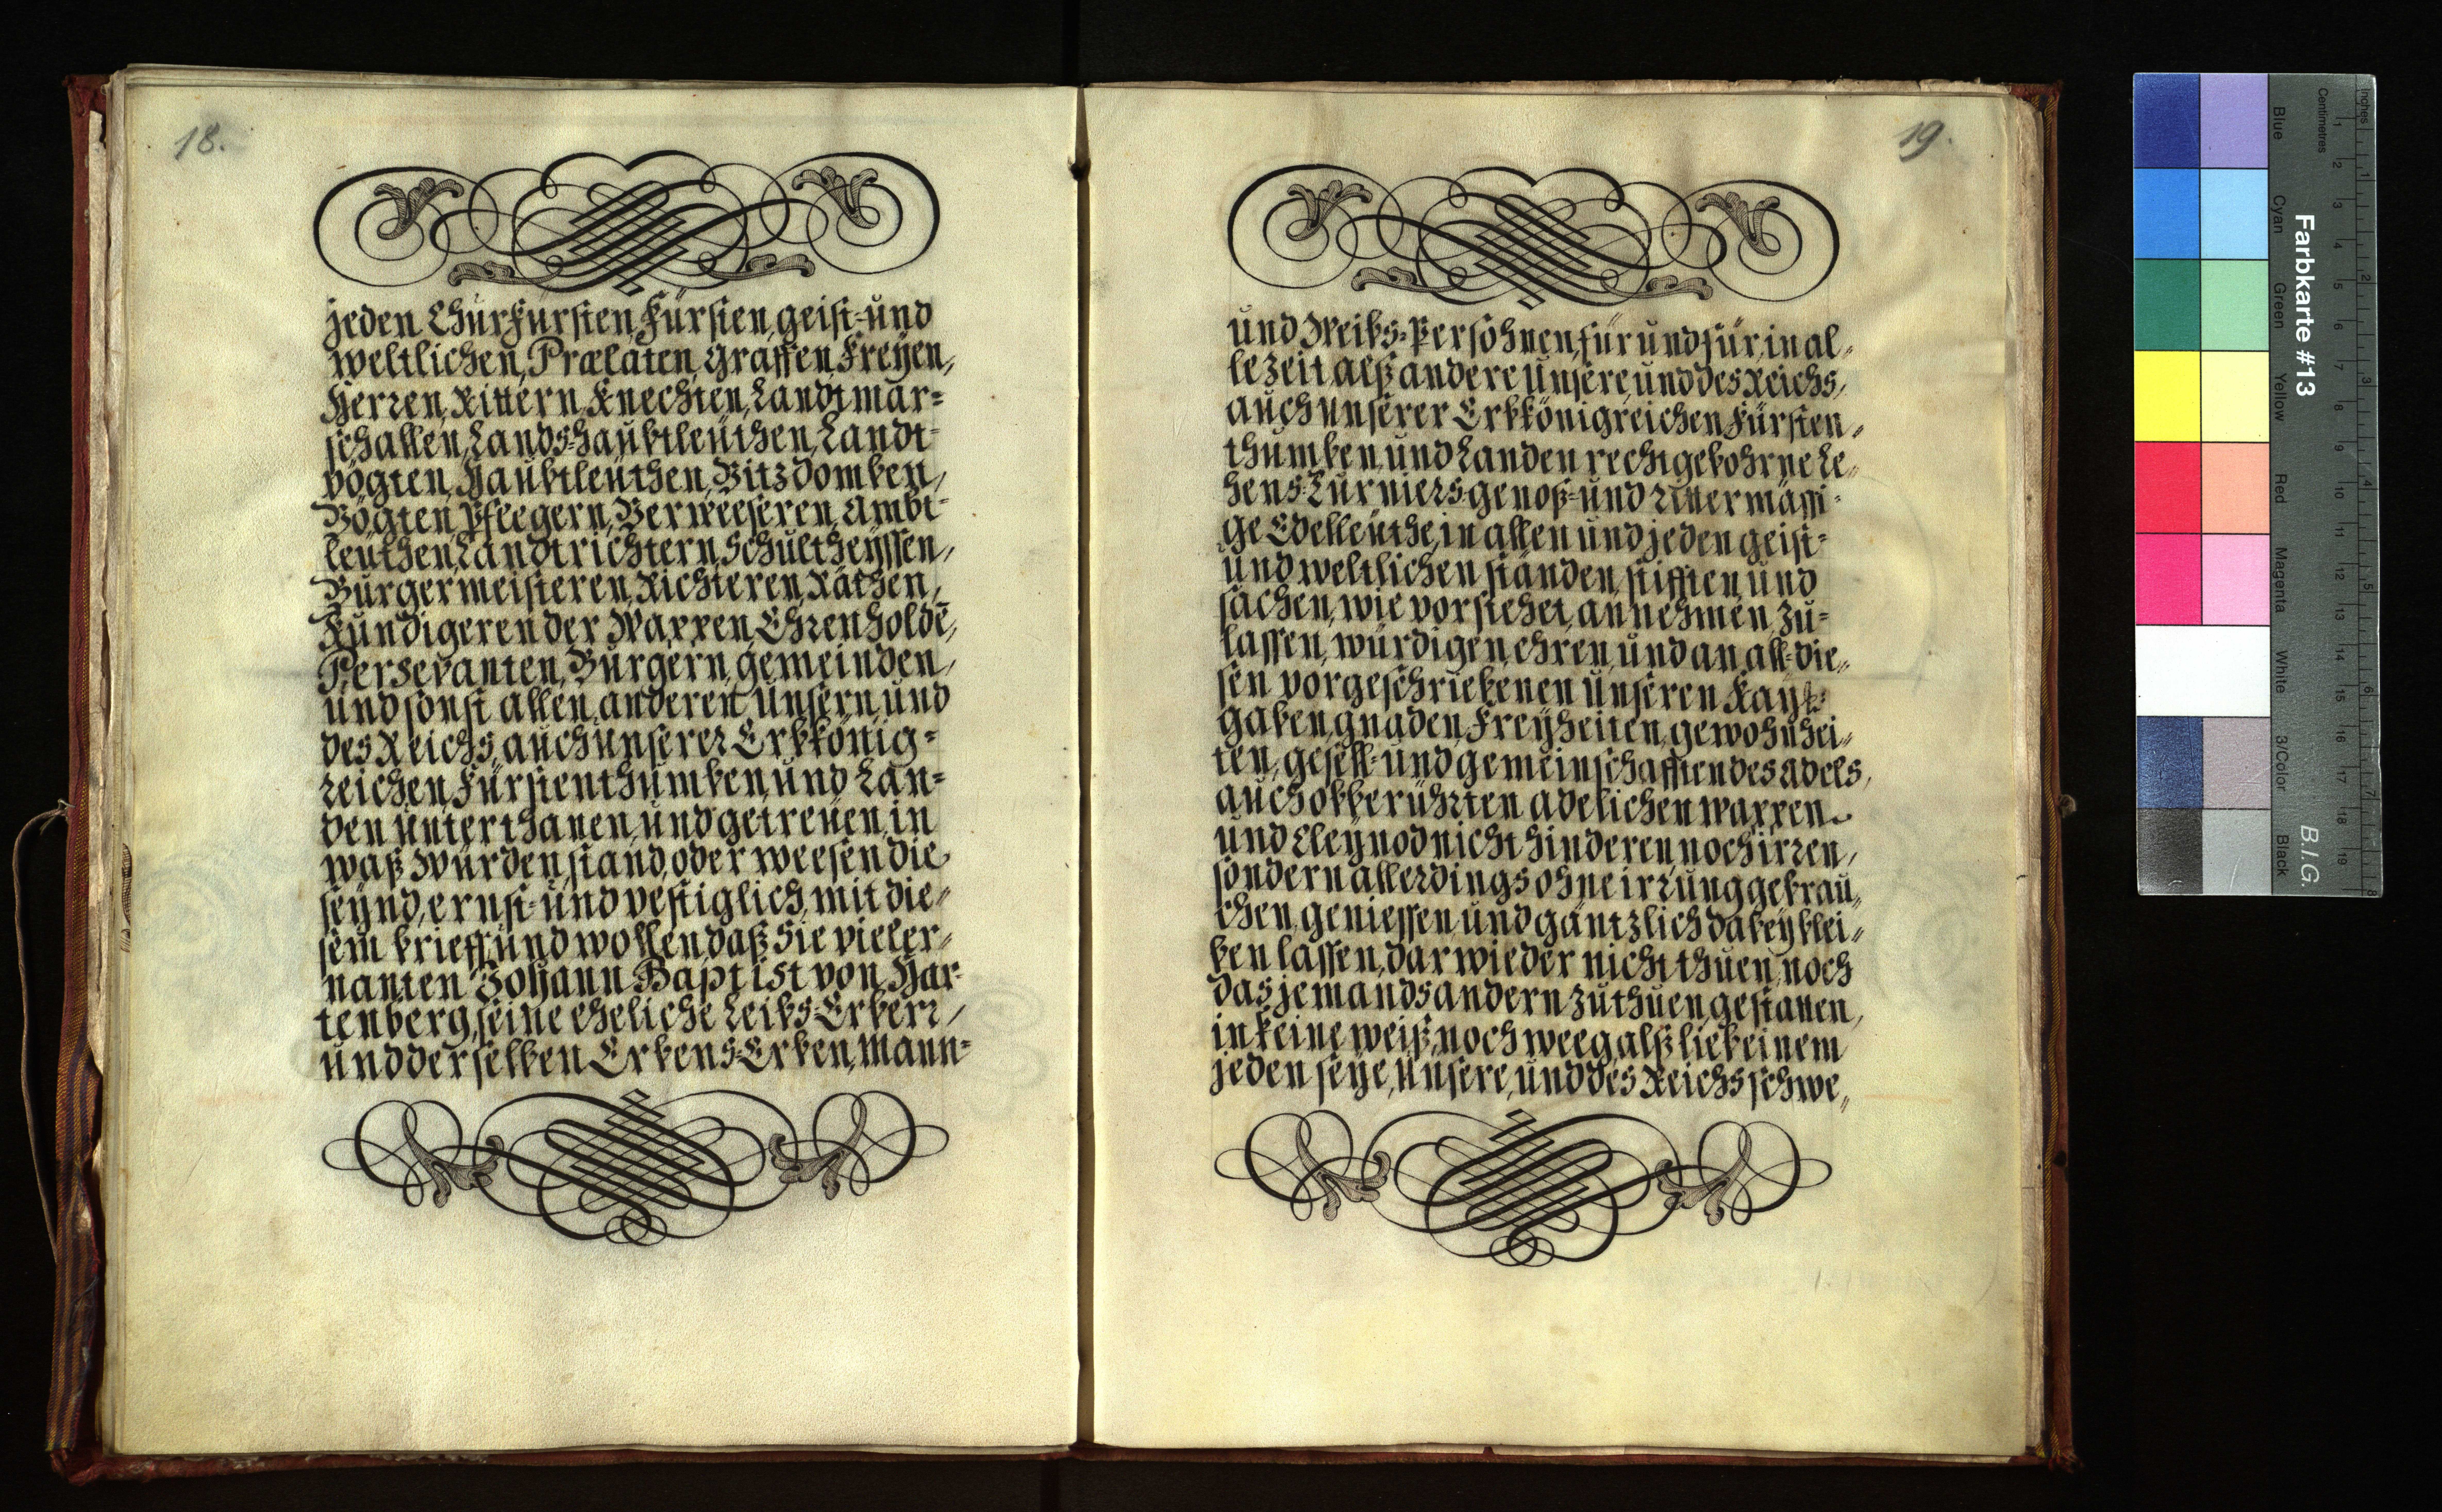 18.
jeden Churfürsten, Fürsten, geist- und
weltlichen, Prælaten, Graffen, Freyen,
Herren, Rittern, Knechten, Landtmar-
schallen, Lands-haubtleüthen, Landt-
vögten, Haubtleüthen, Vitzdomben,
Vögten, Pfleegern, Verweeseren, Ambt-
leüthen, Landtrichtern, Schultheyssen,
Burgermeisteren, Richteren, Räthen,
Kundigeren der Wappen, Ehrenholdē,
Persevanten, Burgern, gemeinden,
und sonst allen anderen Unsern, und
des Reichs, auch unserer Erbkönig-
reichen, Fürstenthumben, und Lan-
den unterthanen, und getreüen, in
waß Würden, stand, oder weesen die
seynd, ernst- und vestiglich, mit die-
sem brieff, und wollen, daß Sie vieler-
nanten Johann Baptist von Har-
tenberg, seine eheliche Leibs-Erben,
und derselben Erbens-Erben, Mann-
19.
und Weibs-Persohnen, für und für, in al-
le zeit alß andere Unsere, und des Reichs,
auch unserer Erbkönigreichen Fürsten-
thumben, und Landen recht gebohrne Le-
hens-Turniers-genoß- und Rittermässi-
ge Edelleüthe, in allen und jeden geist-
und weltlichen ständen, stifften, und
sachen, wie vorstehet, annehmen, zu-
lassen, würdigen, ehren, und an all-die-
sen vorgeschriebenen Unseren Kays:
gaben, gnaden, Freyheiten, gewohnhei-
ten, gesell- und gemeinschafften des adels,
auch obberührten adelichen wappen
und Cleynod nicht hinderen, noch irren,
sondern allerdings ohne irrung gebrau-
chen, geniessen, und gäntzlich dabey blei-
ben lassen, darwieder nicht thuen, noch
das jemands andern zu thuen, gestatten,
in keine weiß, noch weeg, alß lieb einem
jeden seye, Unsere, und des Reichs schwe-
Farbkarte #13
B.I.G.
Inches
Centimetres
Blue
Cyan
Green
Yellow
Red
Magenta
White
3/Color
Black